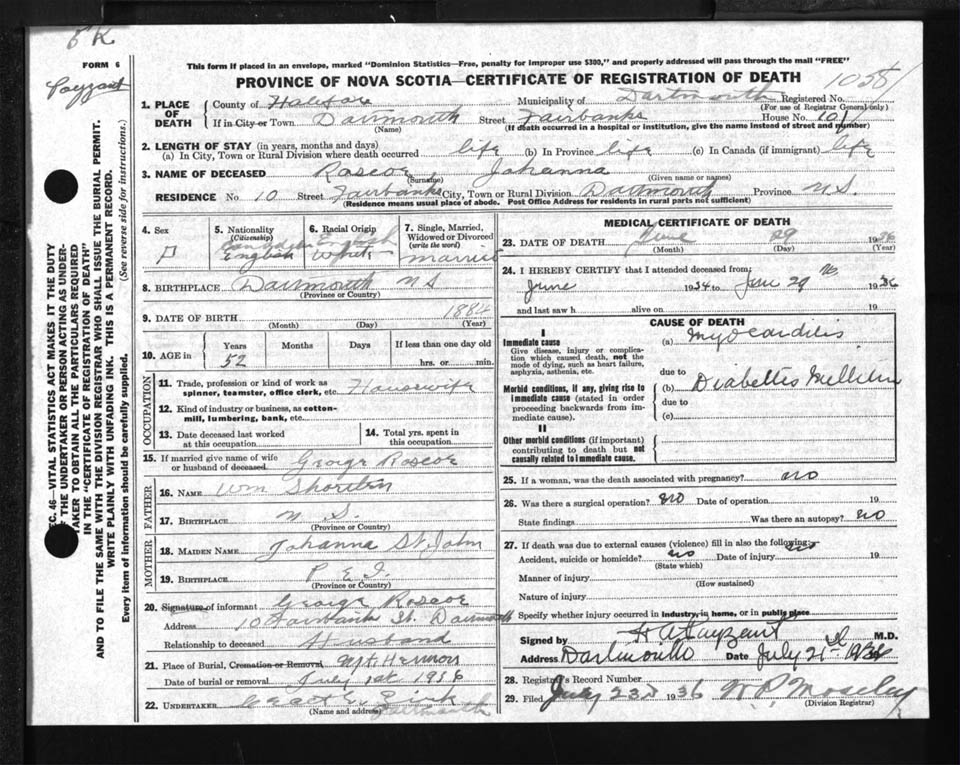 FORM 6
Payzant
This form if placed in an envelope, marked "Dominion Statistics—Free, penalty for improper use $300," and properly addressed will pass through the mail "FREE"
PROVINCE OF NOVA SCOTIA—CERTIFICATE OF REGISTRATION OF DEATH
1. PLACE OF DEATH County of Halifax Municipality of Dartmouth Registered No.
(For use of Registrar General only)
If in City or Town Dartmouth Street Fairbanks House No. 10
(Name) (If death occurred in a hospital or institution, give the name instead of street and number)
2. LENGTH OF STAY (in years, months and days)
(a) In City, Town or Rural Division where death occurred life (b) In Province life (c) In Canada (if immigrant) life
3. NAME OF DECEASED Roscoe Johanna
(Surname) (Given name or names)
RESIDENCE No 10 Street Fairbanks City, Town or Rural Division Dartmouth Province N.S.
(Residence means usual place of abode. Post Office Address for residents in rural parts not sufficient)
SEC. 46—VITAL STATISTICS ACT MAKES IT THE DUTY
OF THE UNDERTAKER OR PERSON ACTING AS UNDER-
TAKER TO OBTAIN ALL THE PARTICULARS REQUIRED
IN THE "CERTIFICATE OF REGISTRATION OF DEATH"
AND TO FILE THE SAME WITH THE DIVISION REGISTRAR WHO SHALL ISSUE THE BURIAL PERMIT.
WRITE PLAINLY WITH UNFADING INK. THIS IS A PERMANENT RECORD.
Every item of information should be carefully supplied. (See reverse side for instructions.)
4. Sex F
5. Nationality (Citizenship) Canadian English
6. Racial Origin English White
7. Single, Married, Widowed or Divorced (write the word) married
8. BIRTHPLACE Dartmouth N S
(Province or Country)
9. DATE OF BIRTH 1884
(Month) (Day) (Year)
10. AGE in Years 52 Months Days If less than one day old
hrs. or min.
OCCUPATION
11. Trade, profession or kind of work as spinner, teamster, office clerk, etc. Housewife
12. Kind of industry or business, as cotton-mill, lumbering, bank, etc.
13. Date deceased last worked at this occupation
14. Total yrs. spent in this occupation
15. If married give name of wife or husband of deceased George Roscoe
FATHER
16. NAME Wm
17. BIRTHPLACE N. S.
(Province or Country)
MOTHER
18. MAIDEN NAME Johanna St John
19. BIRTHPLACE P E I
(Province or Country)
20. Signature of informant George Roscoe
Address 10 Fairbanks St. Dartmouth
Relationship to deceased Husband
21. Place of Burial, Cremation or Removal Mt Hermon
Date of burial or removal July 1st 1936
22. UNDERTAKER Dartmouth
(Name and address)
MEDICAL CERTIFICATE OF DEATH
23. DATE OF DEATH June 29 1936
(Month) (Day) (Year)
24. I HEREBY CERTIFY that I attended deceased from:
June 1934 to June 29 th 1936
and last saw h alive on 19
CAUSE OF DEATH
I
Immediate cause (a) Myocarditis
Give disease, injury or complication which caused death, not the mode of dying, such as heart failure, asphyxia, asthenia, etc.
due to
Morbid conditions, if any, giving rise to immediate cause (stated in order proceeding backwards from immediate cause).
(b) Diabettes
due to
(c)
II
Other morbid conditions (if important) contributing to death but not causally related to immediate cause.
25. If a woman, was the death associated with pregnancy? no
26. Was there a surgical operation? no Date of operation 19
State findings Was there an autopsy? no
27. If death was due to external causes (violence) fill in also the following:
Accident, suicide or homicide? no Date of injury 19
(State which)
Manner of injury
(How sustained)
Nature of injury
Specify whether injury occurred in industry, in home, or in public place
Signed by H A Payzant M.D.
Address Dartmouth Date July 21st 1936
28. Registrar's Record Number
29. Filed July 23rd 1936
(Division Registrar)